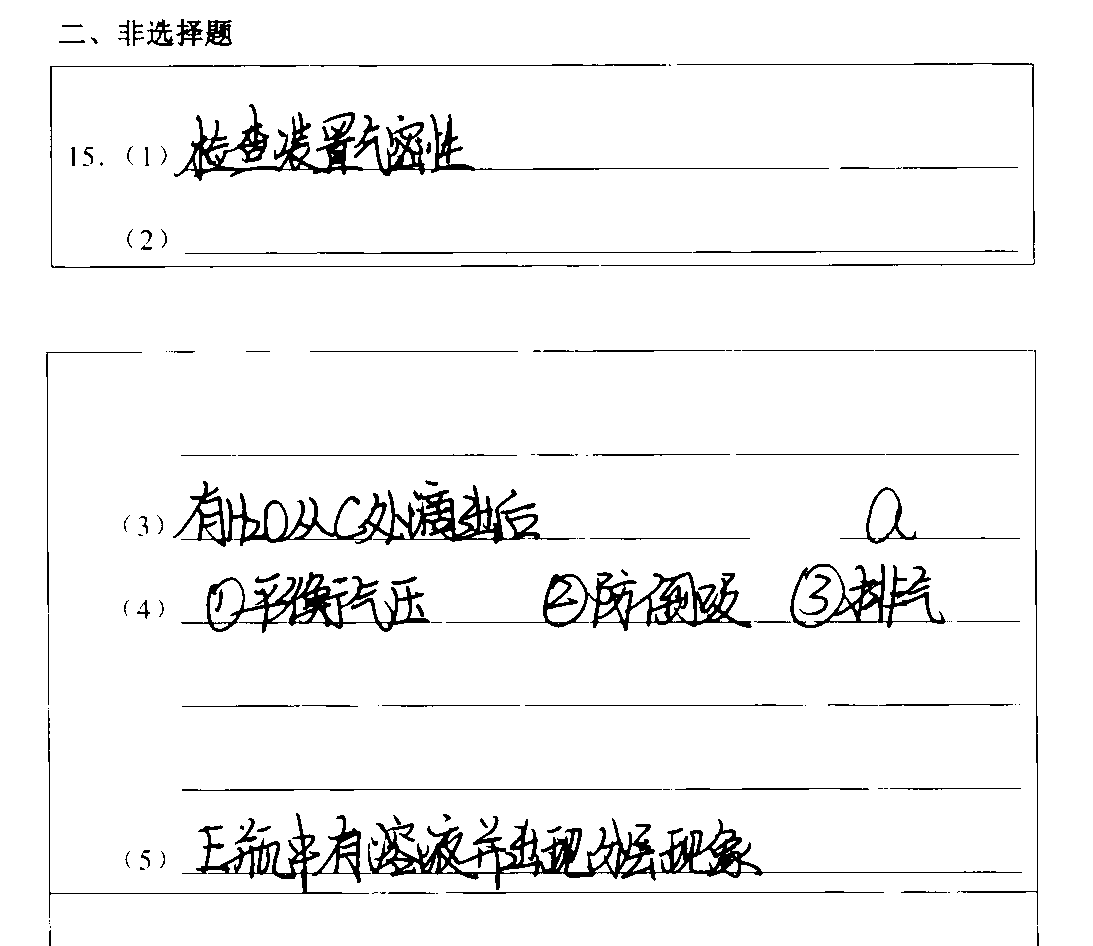 二、非选择题
15.（1）检查装置气密性
（2）
（3）有H₂O从C处滴出后 a
（4）①平衡气压 ②防倒吸 ③排气
（5）E瓶中有溶液并出现分层现象